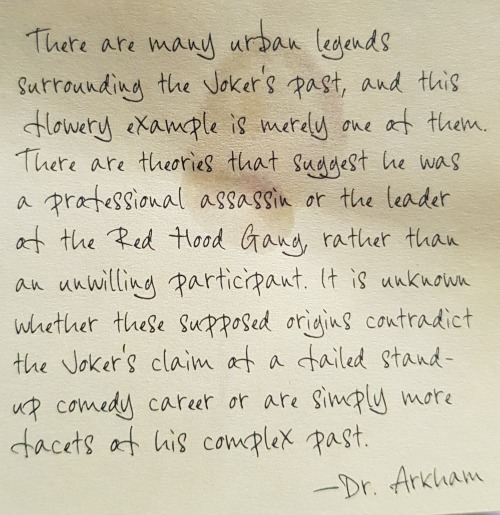 There are many urban legends
surrounding the Joker's past, and this
flowery example is merely one of them.
There are theories that suggest he was
a professional assassin or the leader
of the Red Hood Gang, rather than
an unwilling participant. It is unknown
whether these supposed origins contradict
the Joker's claim of a failed stand-
up comedy career or are simply more
facets of his complex past.
—Dr. Arkham